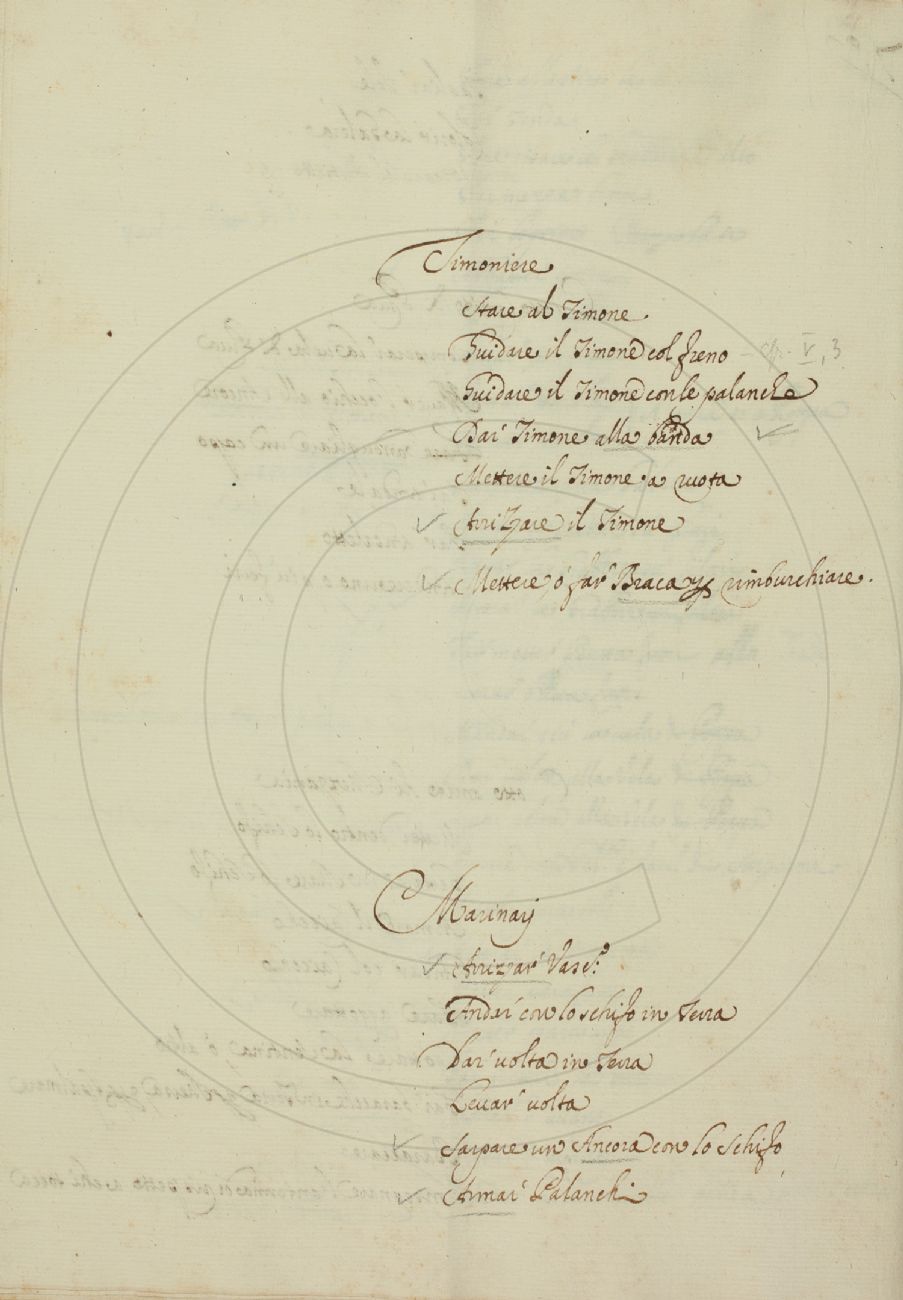 Timoniere
Stare al Timone
Guidare il Timone col freno - cfr. V, 3
Guidare il Timone con le palanche
Dar' Timone alla banda
Mettere il Timone a ruota
Arrizare il Timone
Mettere, ó far' Braca p rimburchiare.
Marinarij
Arrizzar' Vasc.º
Andar' con lo schifo in Terra
Dar' volta in Terra
Levar' volta
Sarpare un Ancora con lo Schifo
Armar' Palanchi